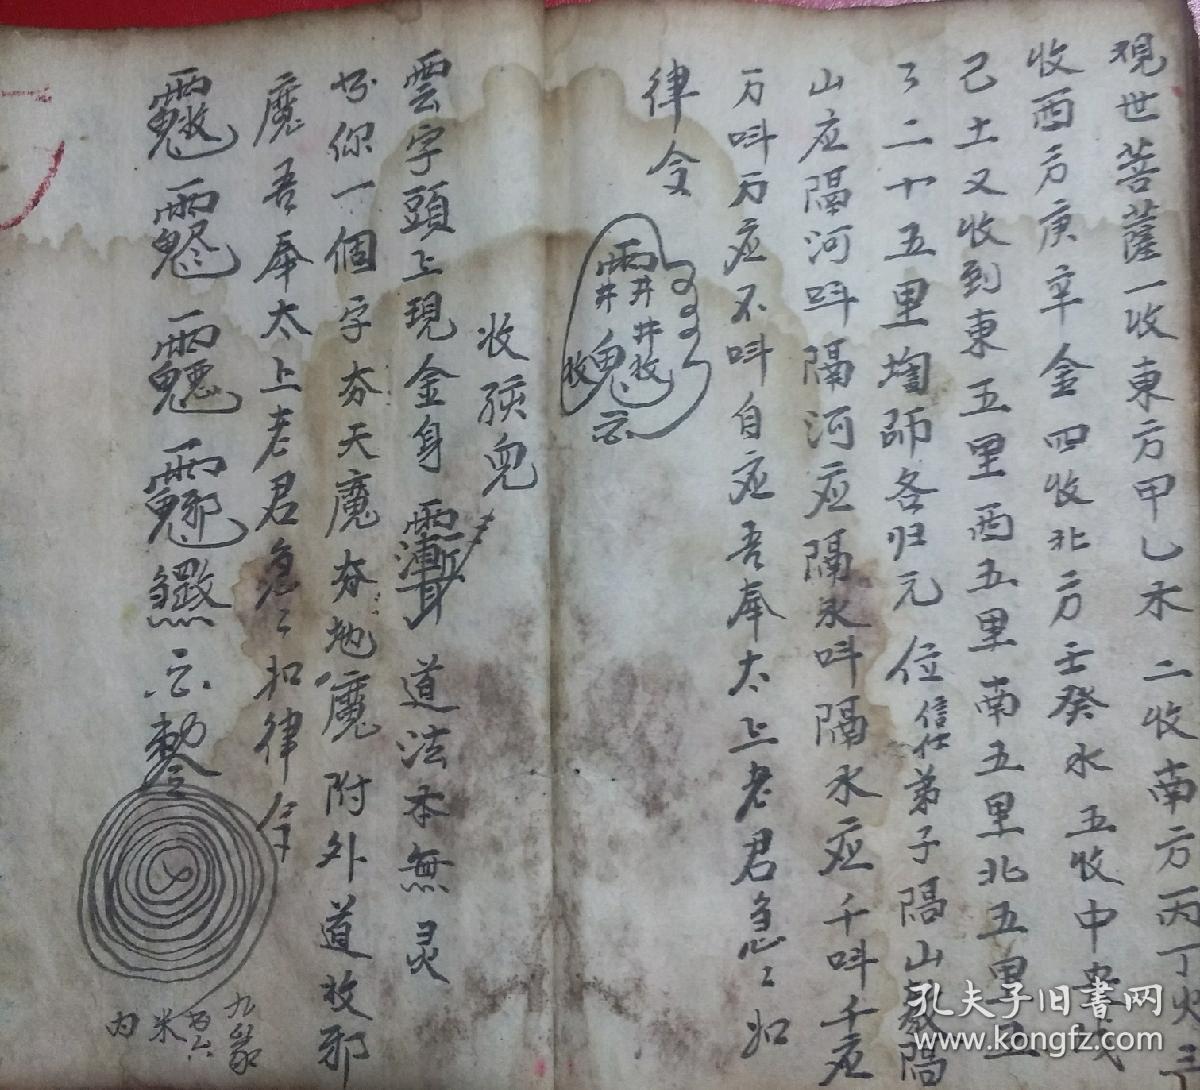 观世菩薩一收東方甲乙木 二收南方丙丁火三
收西方庚辛金四收北方壬癸水五收中央戊
己土又收到東五里西五里南五里北五里五
二十五里 師各归元位信士弟子隔山 隔
山应隔河呌隔河应隔水呌隔水应千呌千应
万呌万应不呌自应吾奉太上老君急〻如
律令
收 鬼
雲字頭上現金身 道法本無灵
你一個字夯天魔夯地魔附外道收邪
魔吾奉太上老君急〻如律令
九
米
内
孔夫子旧书网
www.kongfz.com